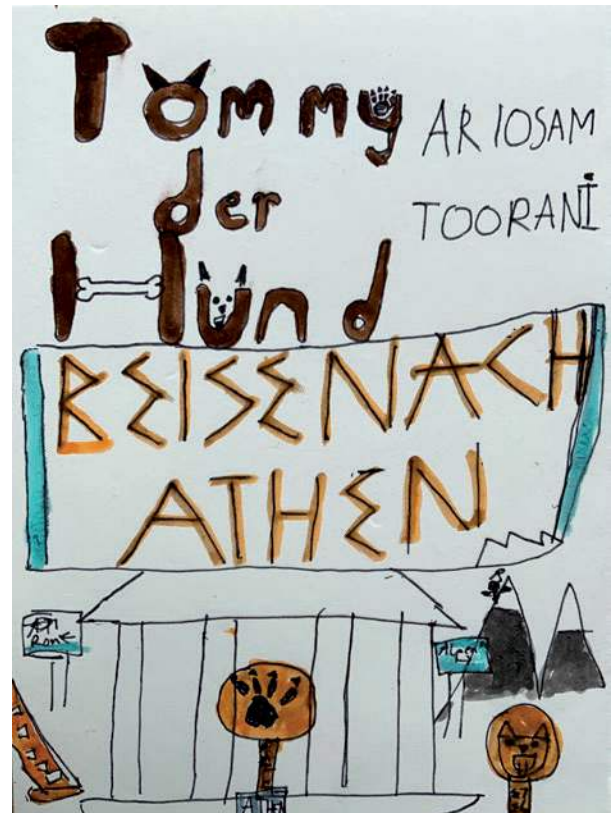 Tommy
der
Hund
ARIOSAM
TOORANİ
BEISENACH
ATHEN
ATHEN